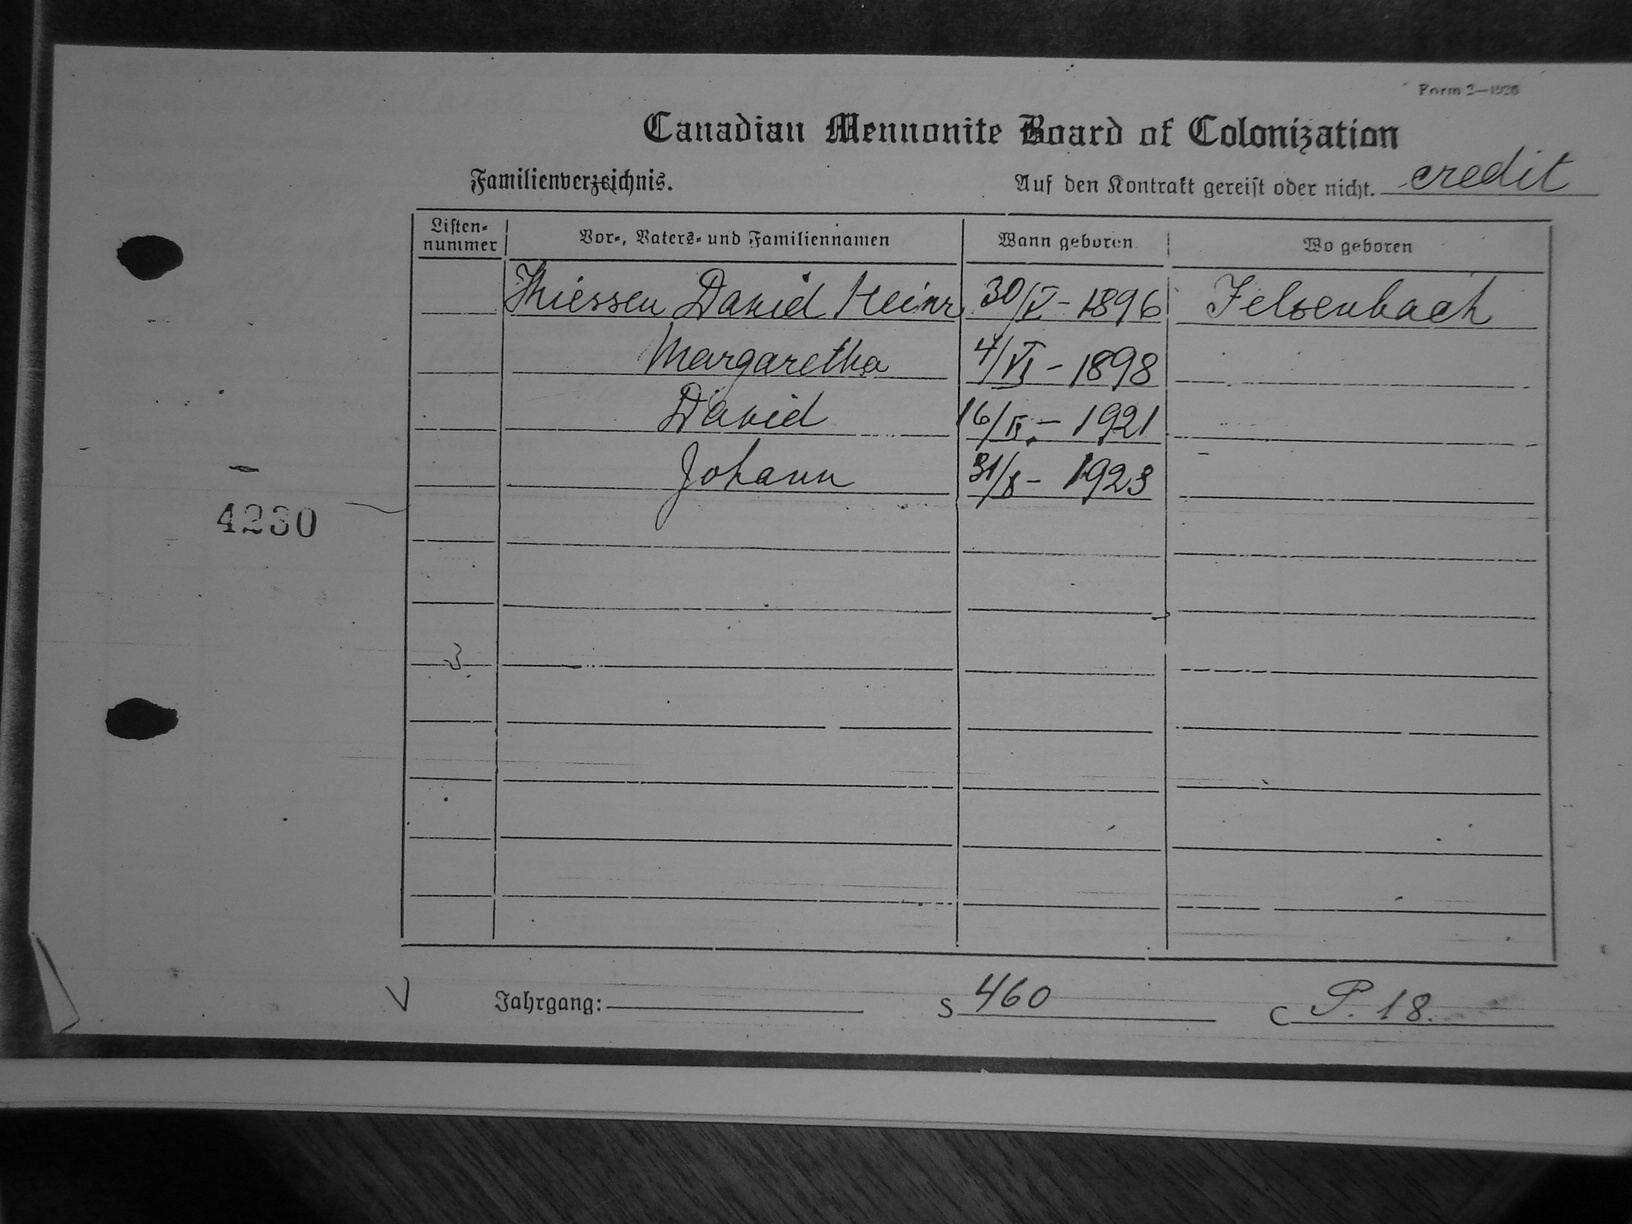 Form 2—1926
Canadian Mennonite Board of Colonization
Familienverzeichnis. Auf den Kontrakt gereist oder nicht. credit
Listen-nummer Vor-, Vaters- und Familiennamen Wann geboren Wo geboren
Thiessen David Heinr 30/V - 1896 Felsenbach
Margaretha 4/VI - 1898
David 16/ - 1921
Johann 31/ - 1923
4230
3
V Jahrgang: S 460 C P. 18.